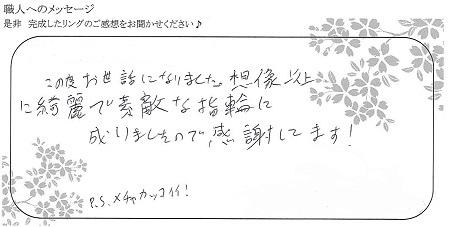 職人へのメッセージ
是非 完成したリングのご感想をお聞かせください♪
この度お世話になりました。想像以上
に綺麗で素敵な指輪に
成りましたので、感謝してます!
P.S. メチャカッコイイ!